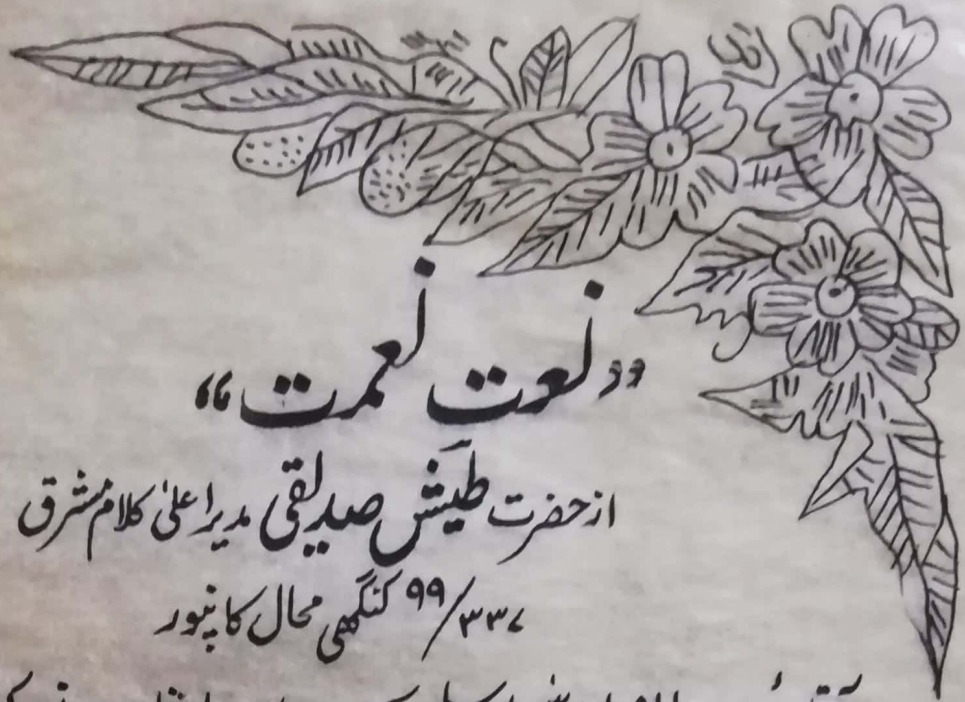 ”نعت نعمت“
از حضرت طیش صدیقی مدیر اعلیٰ کلام مشرق
۹۹/۳۳۷ کنگھی محال کانپور